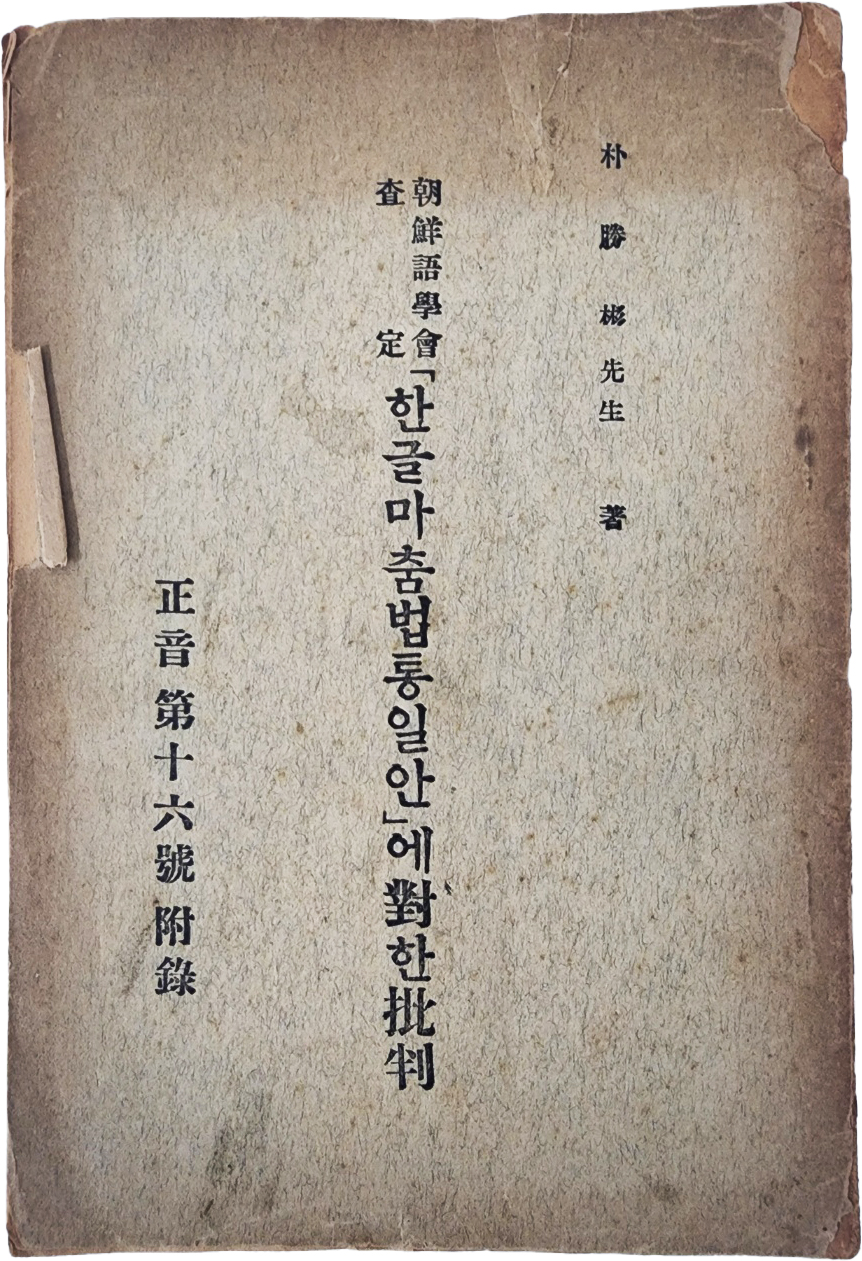 朴勝彬先生 著
朝鮮語學會
査定
「한글마춤법통일안」에對한批判
正音第十六號附錄